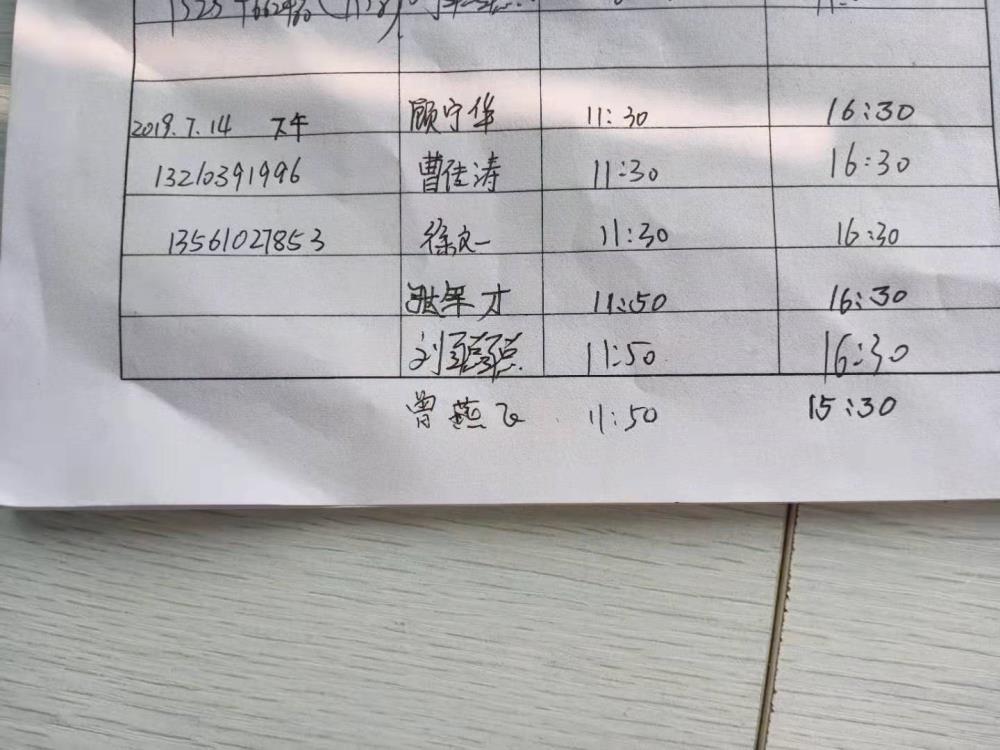 2019.7.14 下午 顾守华 11:30 16:30
13210391996 曹佳涛 11:30 16:30
13561027853 徐文一 11:30 16:30
才 11:50 16:30
刘 11:50 16:30
曾燕飞 11:50 15:30